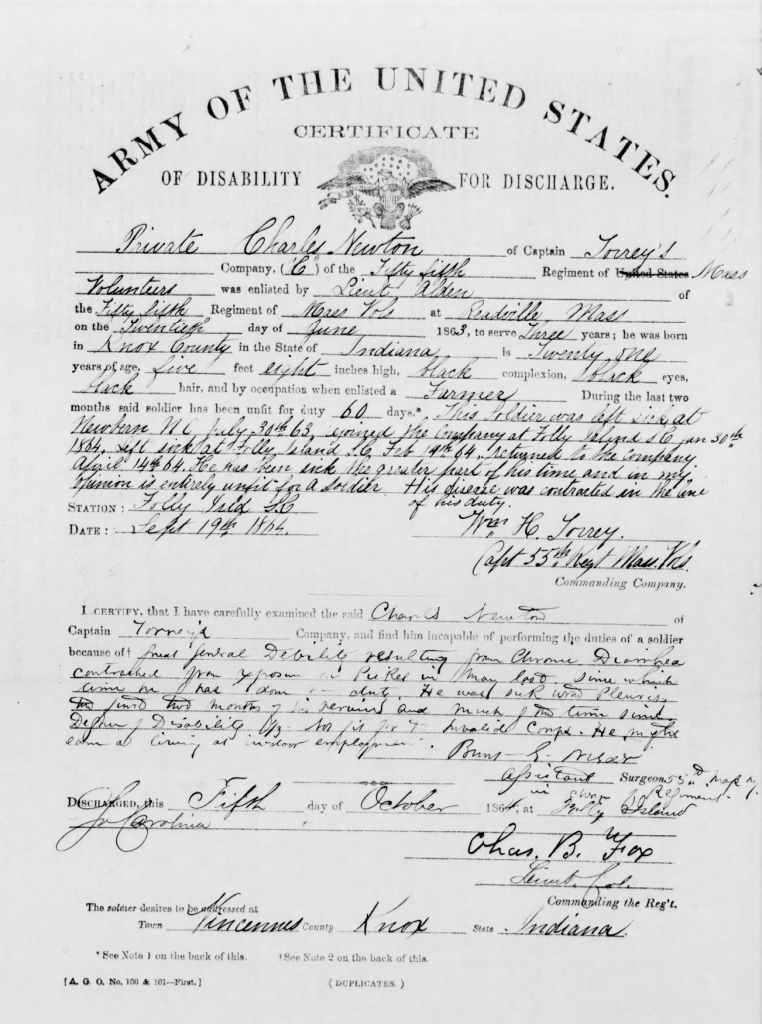 ARMY OF THE UNITED STATES.
CERTIFICATE
OF DISABILITY FOR DISCHARGE.
Private Charles Newton of Captain Torrey's
Company, ("C") of the Fifty fifth Regiment of United States Mass
Volunteers was enlisted by Lieut Alden of
the Fifty fifth Regiment of Mass Vols at Readville Mass
on the Twentieth day of June 1863, to serve Three years; he was born
in Knox County in the State of Indiana is Twenty one
years of age, five feet eight inches high, black complexion, black eyes,
black hair, and by occupation when enlisted a Farmer During the last two
months said soldier has been unfit for duty 60 days.* This Soldier was left sick at
Newbern NC July 30th 63, rejoined the Company at Folly Island SC Jan 30th
1864. Left sick at Folly Island S.C. Feb 19th 64. Returned to the company
April 14th 64. He has been sick the greater part of his time and in my
opinion is entirely unfit for a soldier. His disease was contracted in the line
of his duty.
STATION: Folly Isld S.C
DATE: Sept 19th 1864.
Wm H. Torrey.
Capt 55th Regt Mass. Vols.
Commanding Company.
I CERTIFY, that I have carefully examined the said Charles Newton of
Captain Torrey's Company, and find him incapable of performing the duties of a soldier
because of† great general Debility resulting from Chronic Diarrhea
contracted from exposure on Picket in May last since which
time he has done no duty. He was sick with Pleurisy
the first two months of his service and much of the time since
Degree of Disability 1/2. Not fit for Invalid Corps. He might
earn a living at indoor employment.
Burt G. Wilder
Assistant Surgeon 55th Mass
Regiment
DISCHARGED, this Fifth day of October 1864, at Folly Island
So Carolina
Chas. B. Fox
Lieut. Col.
Commanding the Reg't.
The soldier desires to be addressed at
Town Vincennes County Knox State Indiana.
*See Note 1 on the back of this. †See Note 2 on the back of this.
[A. G. O. No. 100 & 101—First.] (DUPLICATES.)